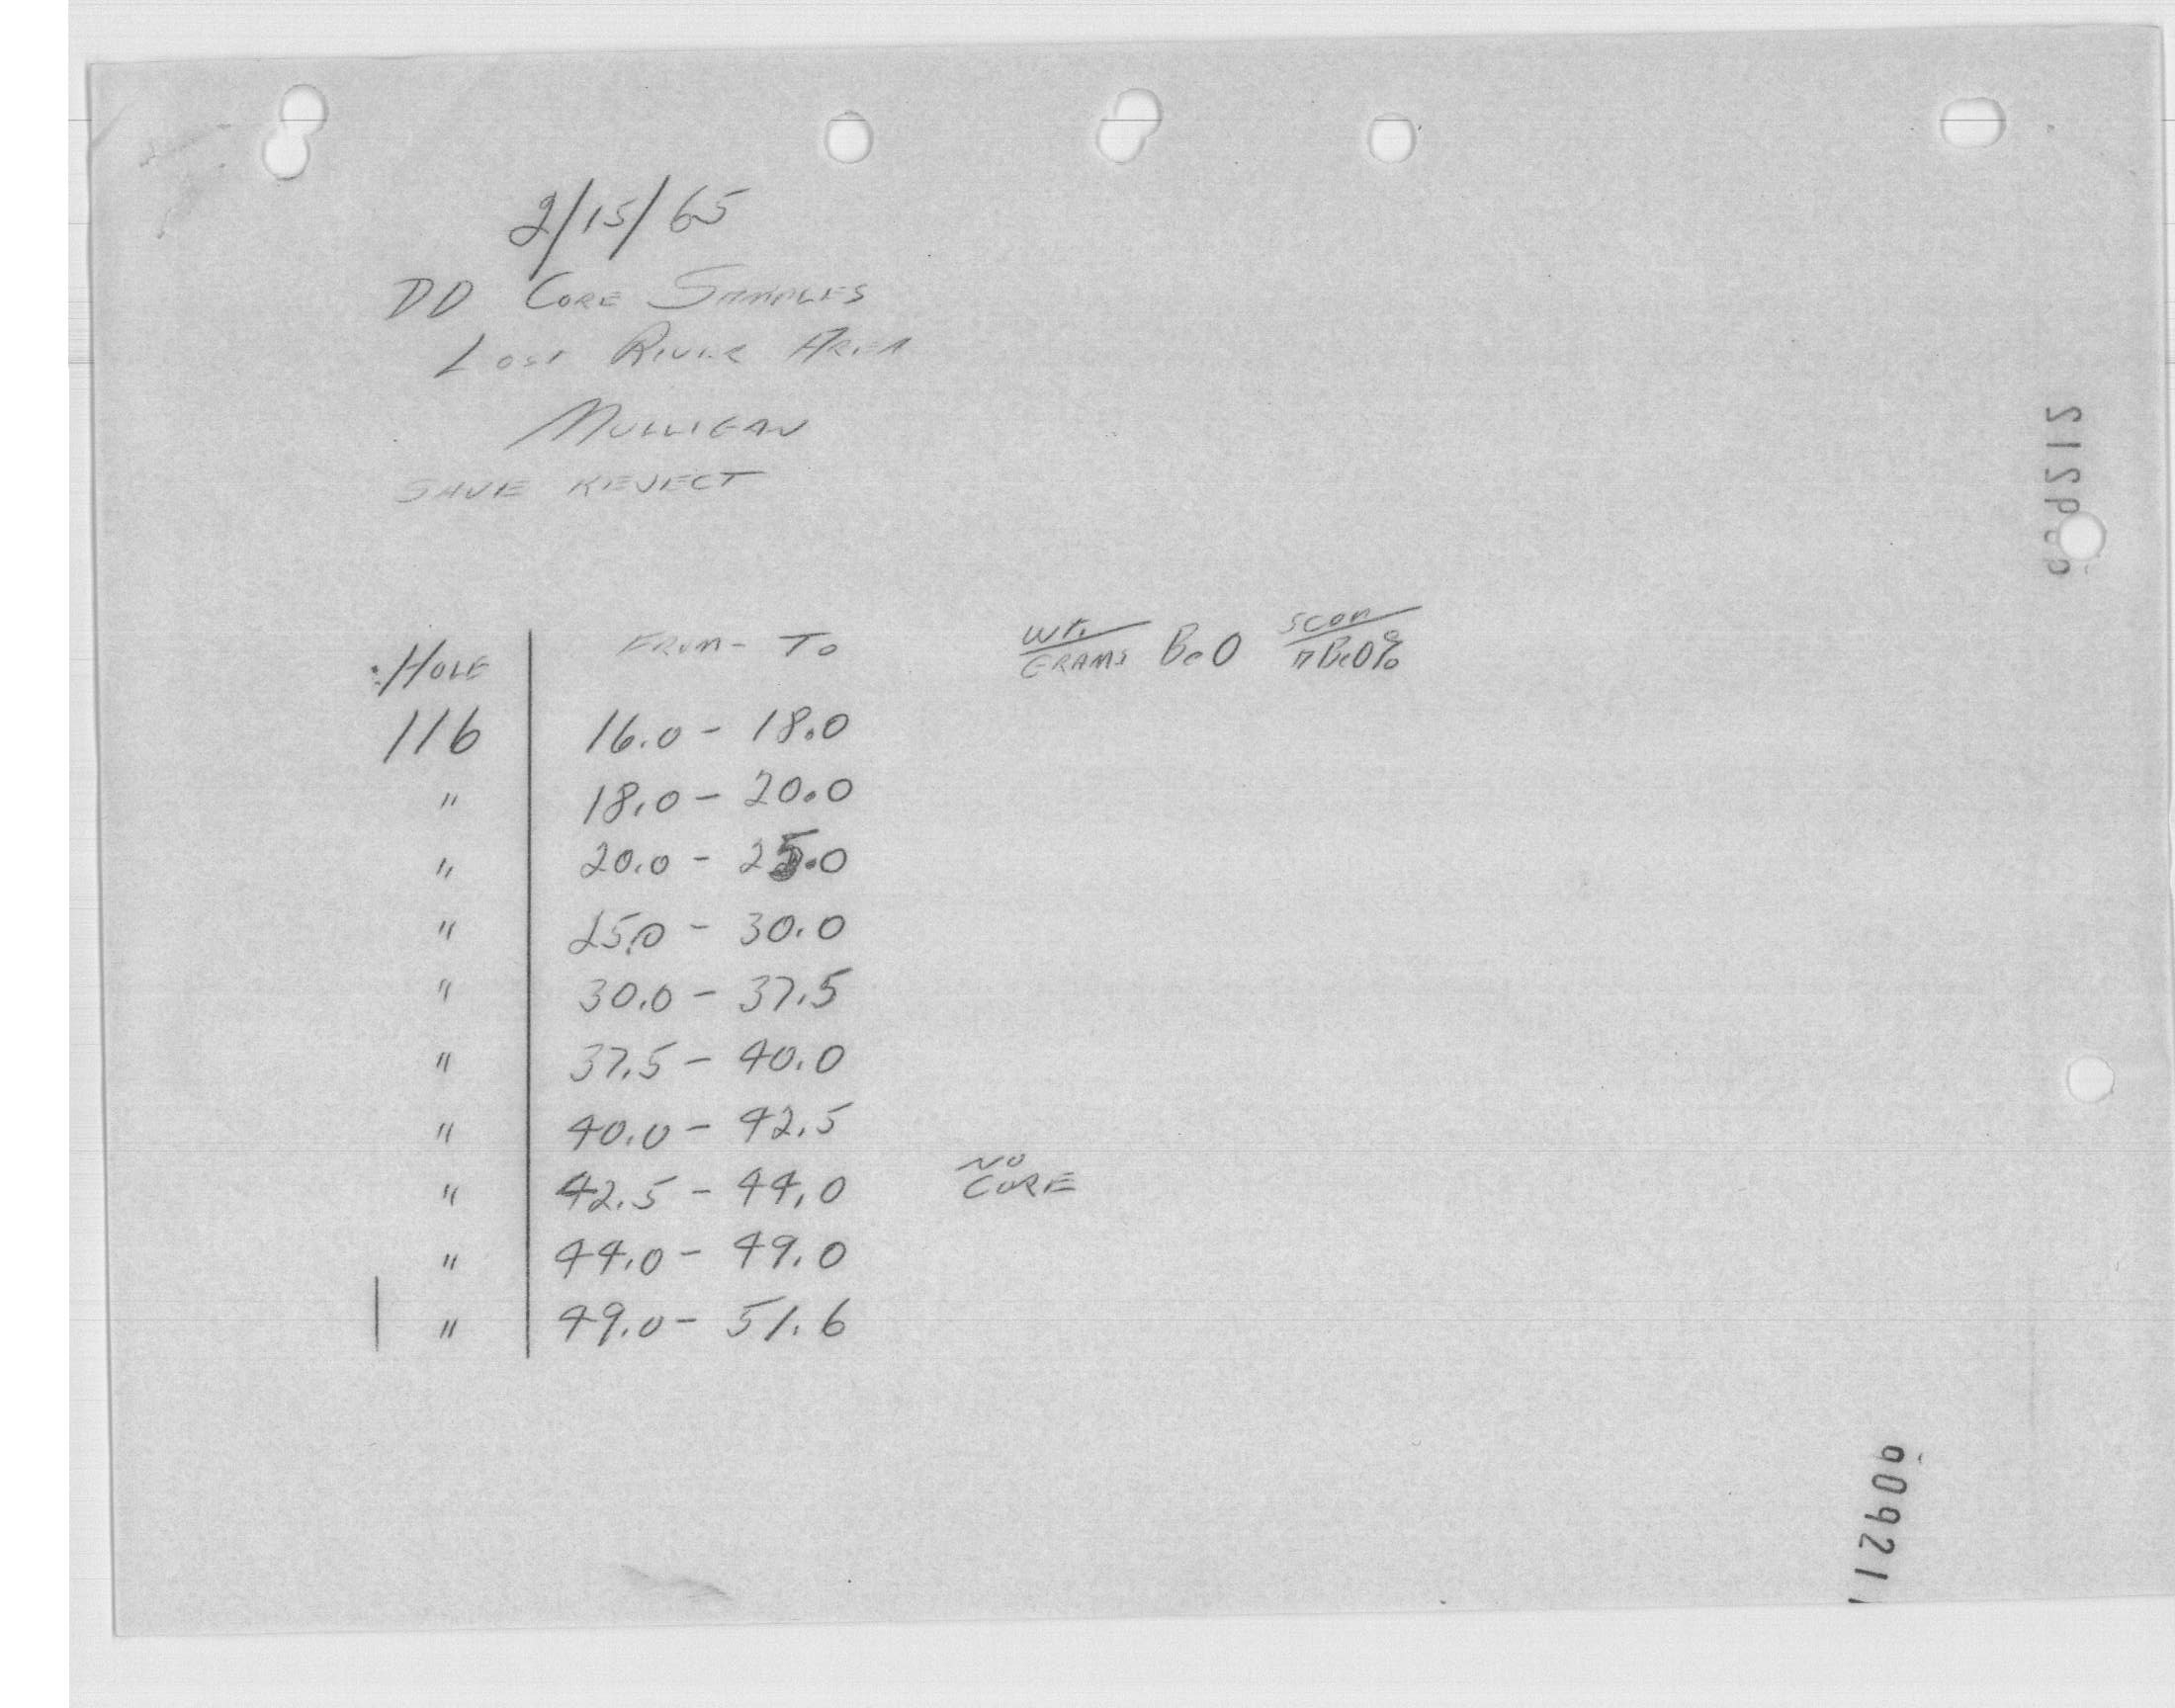 2/15/65
DD CORE SAMPLES
LOST RIVER AREA
MULLIGAN
SAVE REJECT
HOLE FROM - TO WT. GRAMS BeO BeO%
116 16.0 - 18.0
" 18.0 - 20.0
" 20.0 - 25.0
" 25.0 - 30.0
" 30.0 - 37.5
" 37.5 - 40.0
" 40.0 - 42.5
" 42.5 - 44.0 NO CORE
" 44.0 - 49.0
" 49.0 - 51.6